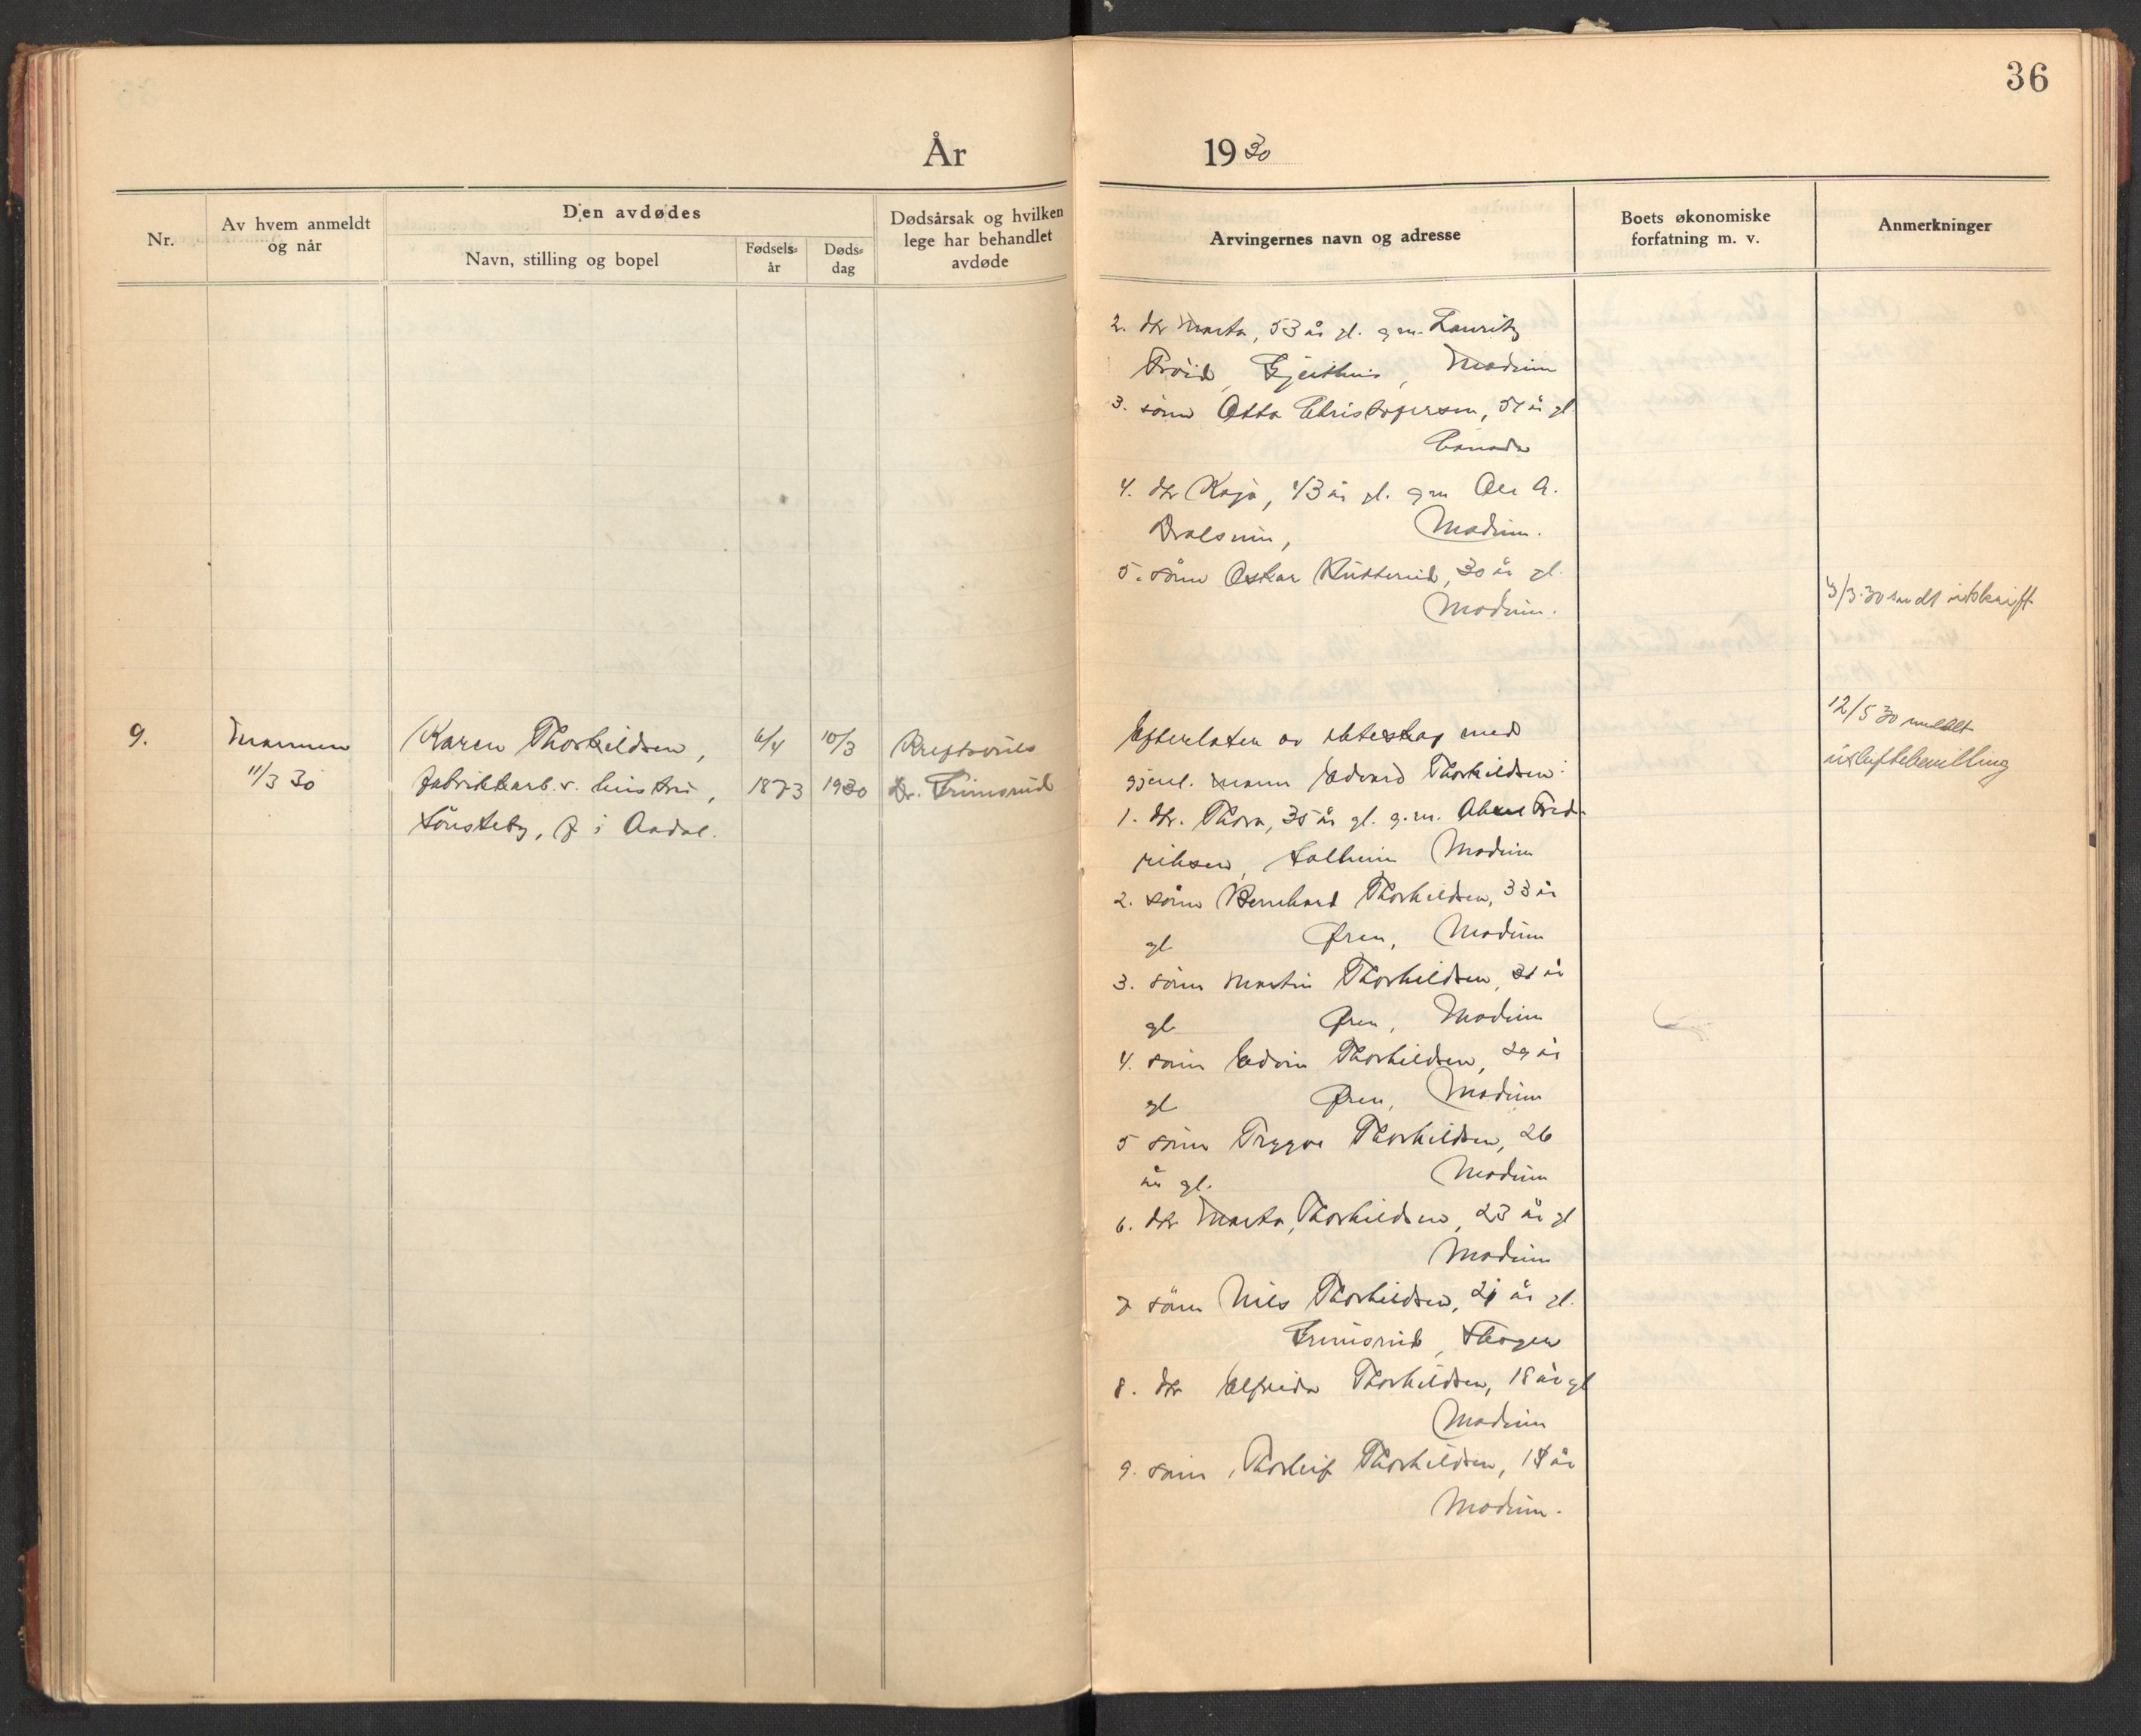 36
År 1930
Nr.
Av hvem anmeldt
og når
Den avdødes
Navn, stilling og bopel
Fødsels-
år
Døds-
dag
Dødsårsak og hvilken
lege har behandlet
avdøde
Arvingernes navn og adresse
Boets økonomiske
forfatning m. v.
Anmerkninger
2. dtr Marta, 53 år gl. g. m. Lauritz
Modum
3. sønn Otto Christofersen, 51 år gl.
Canada
4. dtr Kaja, 43 år gl. g m Ole A.
Modum.
5. sønn Oskar 30 år gl.
Modum.
3/3-30 sendt utskrift
9.
Mannen
11/3 30
Karen Thorkildsen,
fabrikkarb.s. hustru,
Sönsteby, f i Aadal.
6/4
1873
10/3
1930
Kreftsvuls
Dr. Frimsrud
Efterlater av ekteskap med
gjenl. mann Edvard Thorkildsen:
1. dtr. Thora, 35 år gl. g. m. Fred-
riksen, Solheim Modum
2. sønn Bernhard Thorkildsen, 33 år
gl Øren, Modum
3. sønn Martin Thorkildsen, 31 år
gl Øren, Modum
4. sønn Edvin Thorkildsen, 29 år
gl Øren, Modum
5 sønn Trygve Thorkildsen, 26
år gl. Modum
6. dtr Marta Thorkildsen, 23 år gl
Modum
7 sønn Nils Thorkildsen, 21 år gl.
Frimsrud, Skogen
8. dtr Elfrida Thorkildsen, 18 år gl
Modum
9. sønn Thorleif Thorkildsen, 15 år
Modum.
12/5 30 meddelt
uskiftebevilling